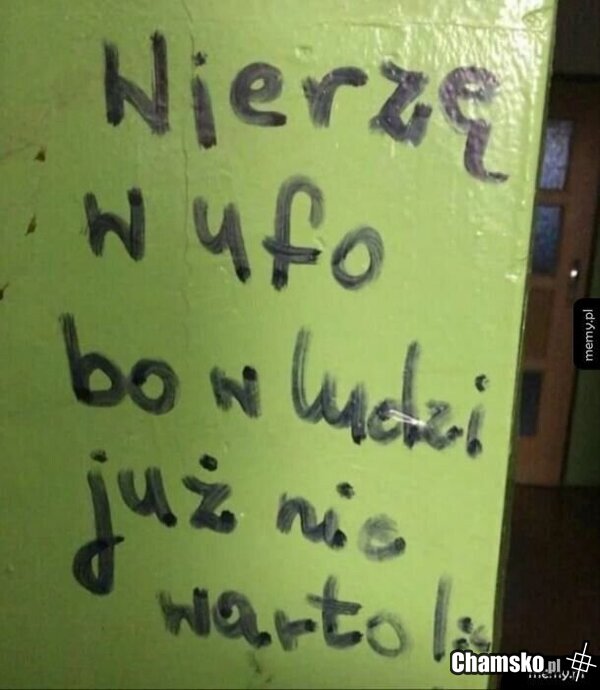 Wierzę
w ufo
bo w ludzi
już nie
warto
memy.pl
Chamsko.pl